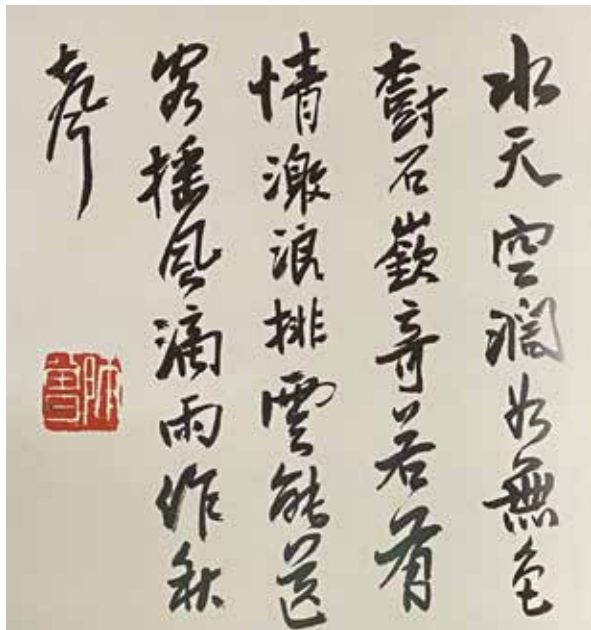 水天空濶如無色
樹石嶔奇若有
情激浪排雲能送
客摇風滴雨作秋
声